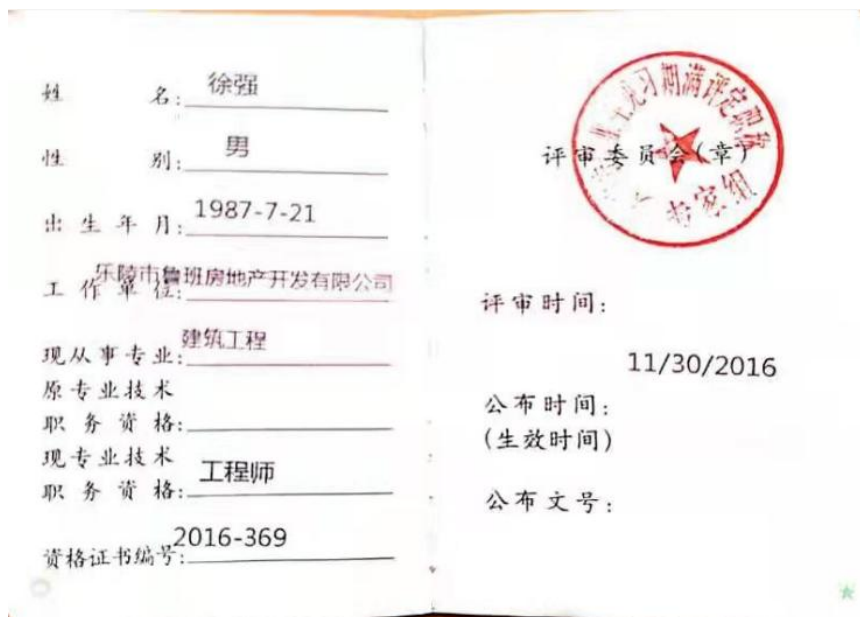 姓 名: 徐强
性 别: 男
出生年月: 1987-7-21
工作单位: 乐陵市鲁班房地产开发有限公司
现从事专业: 建筑工程
原专业技术
职务资格:
现专业技术
职务资格: 工程师
资格证书编号: 2016-369
习期满评定职
专家组
评审委员会(章)
评审时间:
11/30/2016
公布时间:
(生效时间)
公布文号: